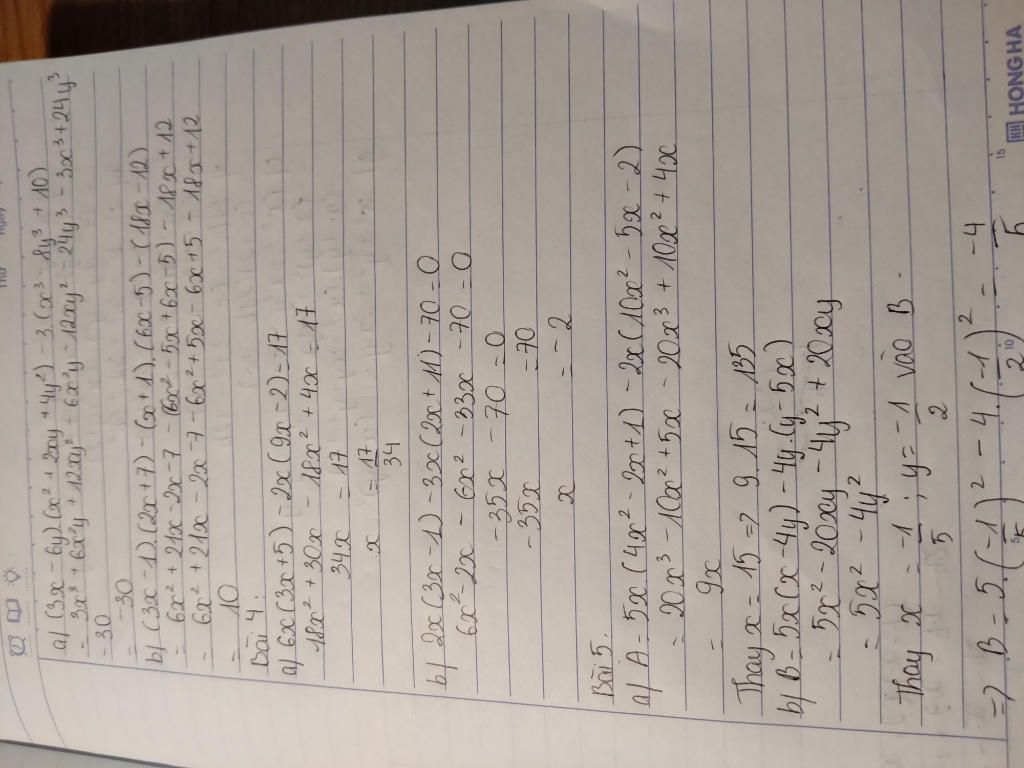 a) (3x - 6y)(x² + 2xy + 4y²) - 3.(x³ - 8y³ + 10)
= 3x³ + 6x²y + 12xy² - 6x²y - 12xy² - 24y³ - 3x³ + 24y³
- 30
= -30
b) (3x - 1).(2x + 7) - (x + 1).(6x - 5) - (18x - 12)
= 6x² + 21x - 2x - 7 - (6x² - 5x + 6x - 5) - 18x + 12
= 6x² + 21x - 2x - 7 - 6x² + 5x - 6x + 5 - 18x + 12
= 10
Bài 4.
a) 6x(3x + 5) - 2x(9x - 2) = 17
18x² + 30x - 18x² + 4x = 17
34x = 17
x = 17/34
b) 2x(3x - 1) - 3x(2x + 11) - 70 = 0
6x² - 2x - 6x² - 33x - 70 = 0
-35x - 70 = 0
-35x = 70
x = -2
Bài 5.
a) A = 5x(4x² - 2x + 1) - 2x(10x² - 5x - 2)
= 20x³ - 10x² + 5x - 20x³ + 10x² + 4x
= 9x
Thay x = 15 => 9.15 = 135
b) B = 5x(x - 4y) - 4y.(y - 5x)
= 5x² - 20xy - 4y² + 20xy
= 5x² - 4y²
Thay x = -1/5 ; y = -1/2 vào B.
=> B = 5.(-1/5)² - 4.(-1/2)² = -4/5
5 10 15 HONG HA